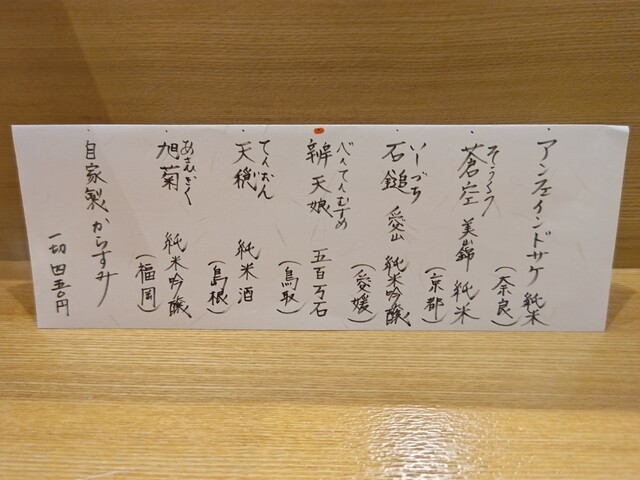 アンフィインドサケ 純米
(奈良)
そうくう
蒼空 美山錦 純米
(京都)
いしづち
石鎚 愛山 純米吟醸
(愛媛)
べんてんむすめ
辨天娘 五百万石
(鳥取)
てんおん
天穏 純米酒
(島根)
あさひぎく
旭菊 純米吟醸
(福岡)
自家製からすみ
一切 四五〇円